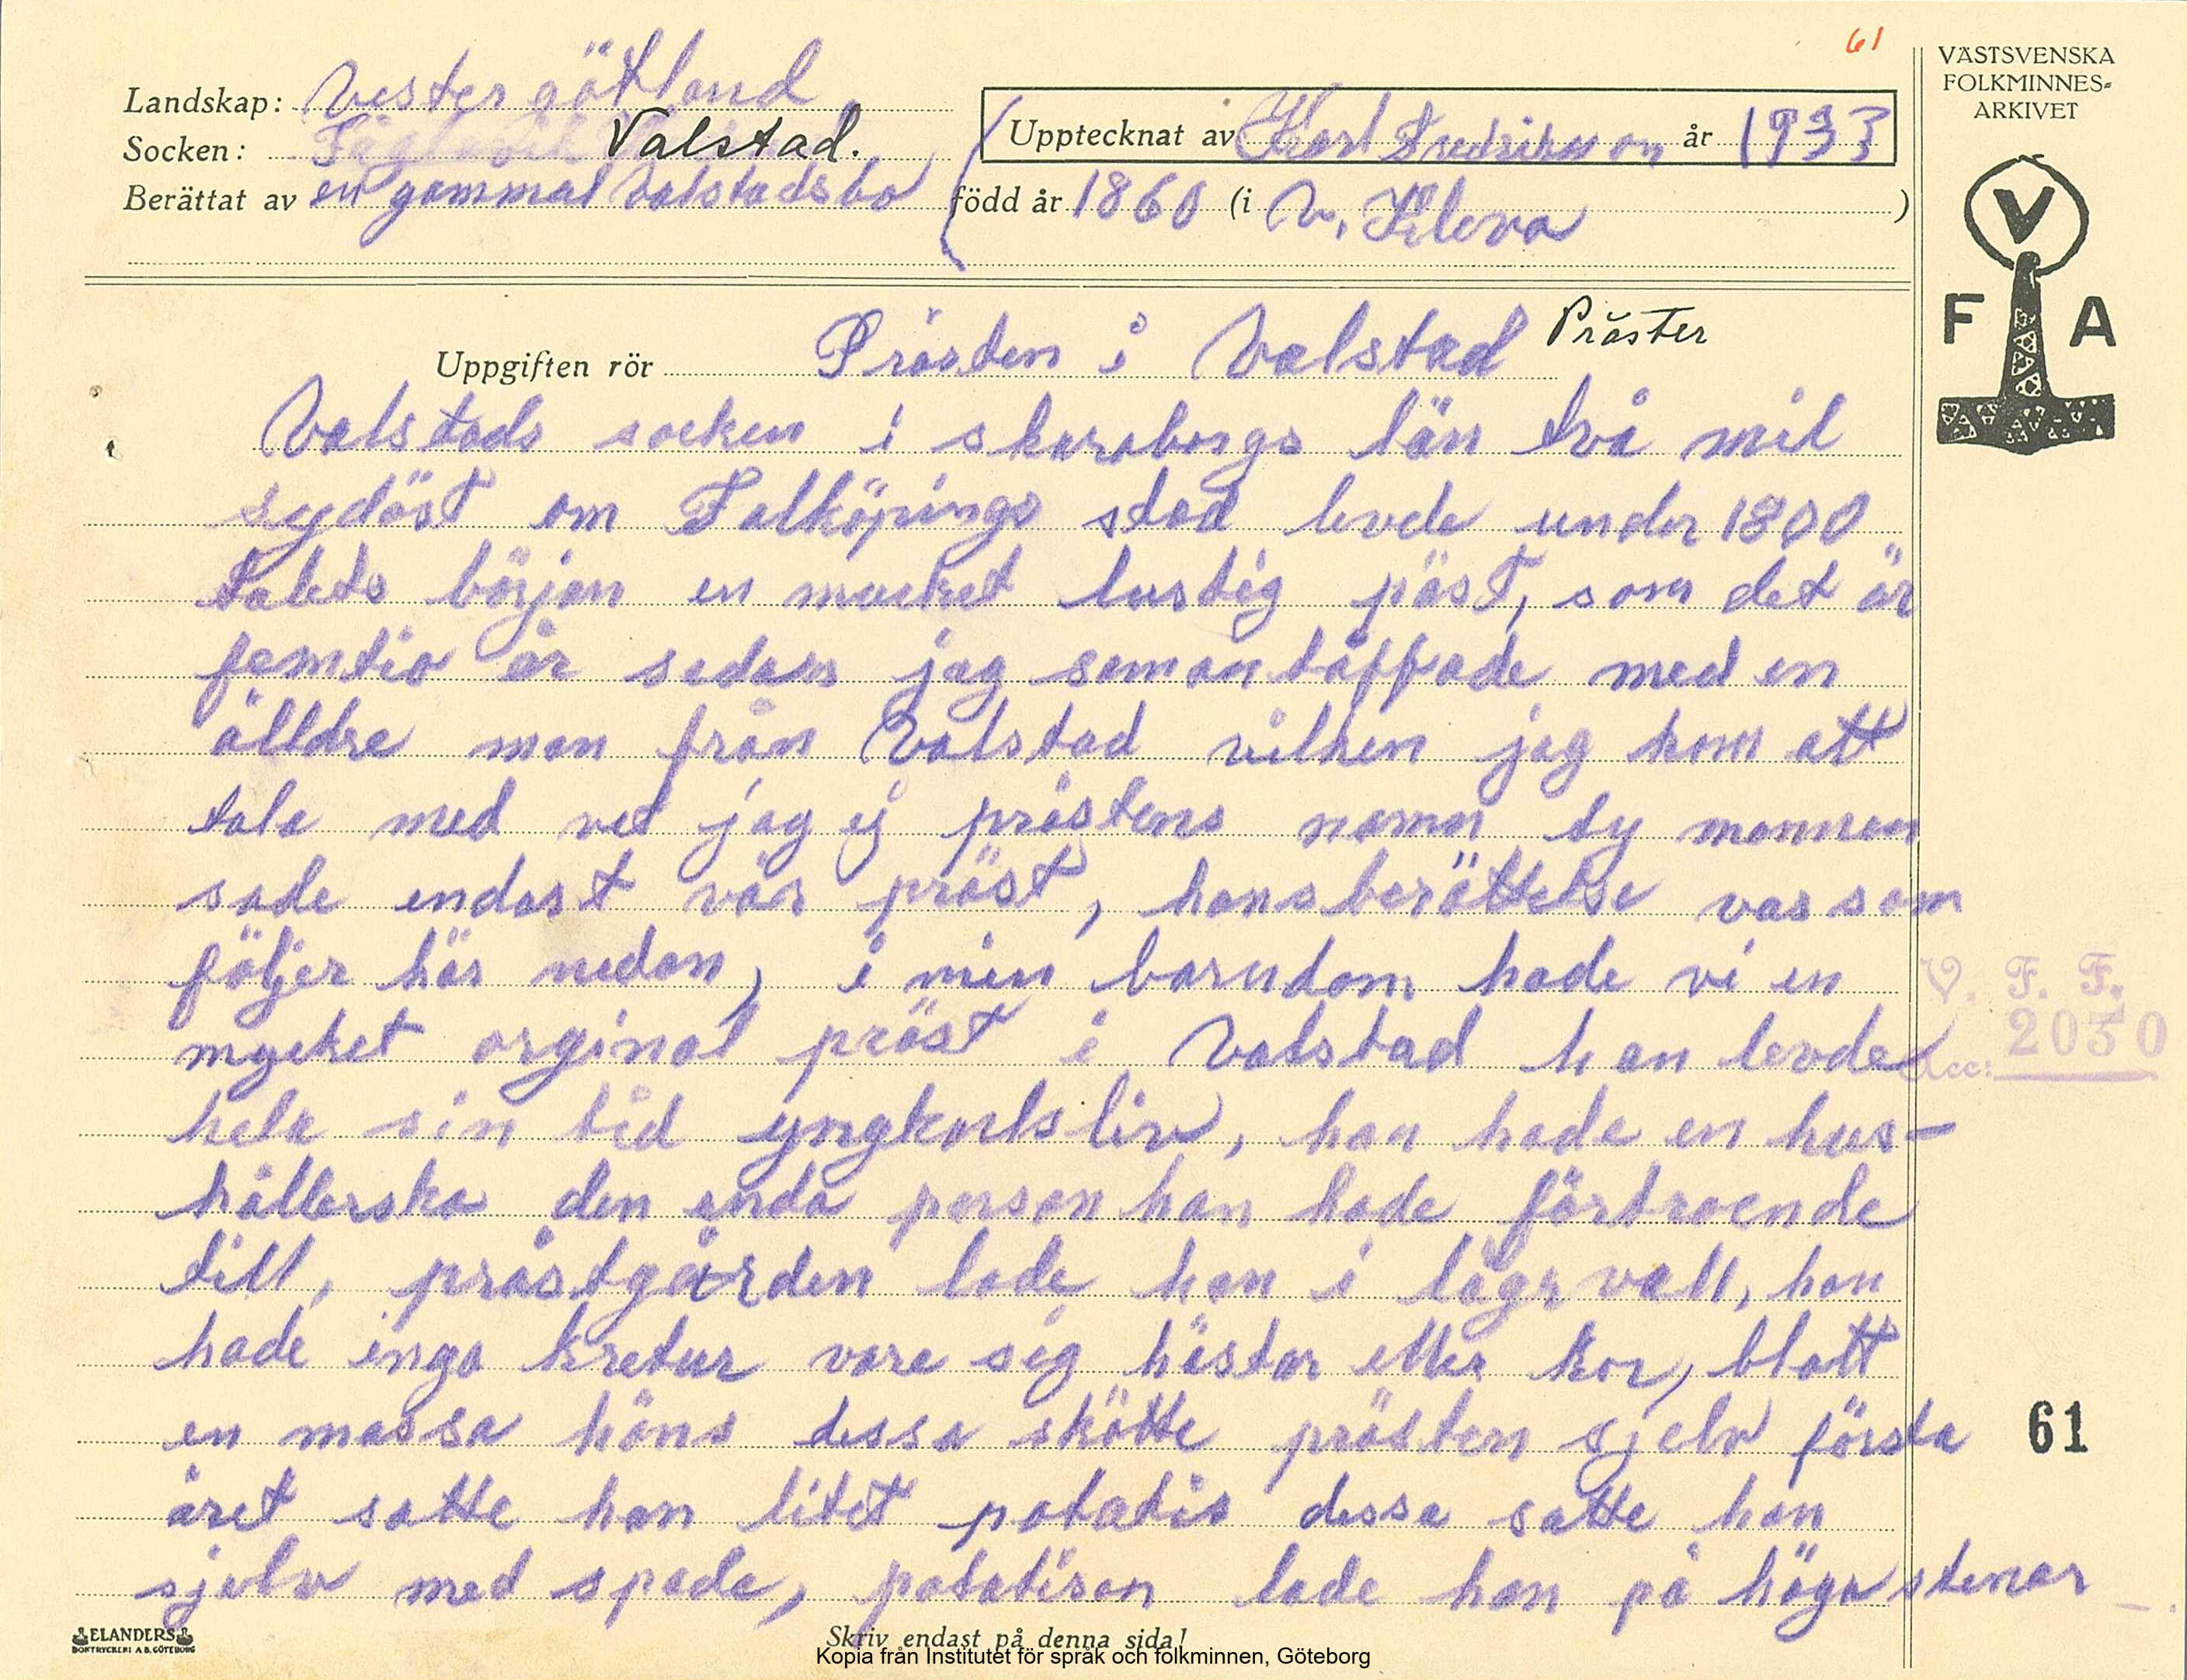 61
VÄSTSVENSKA
FOLKMINNES-
ARKIVET
V
F A
Landskap: Vestergötland
Socken: Valstad.
Upptecknat av Karl Fredriksson år 1933
Berättat av en gammal Valstadsbo född år 1860 (i V. Kleva )
Uppgiften rör Prästen i Valstad Präster
Valstads socken i skaraborgs län två mil
sydöst om Falköpings stad levde under 1800
talets början en mucket lustig päst, som det är
femtio år sedan jag samantäffade med en
älldre man från Valstad vilken jag kom att
tala med vet jag ej prästens namn ty mannen
sade endast vår präst, hans berättelse var som
följer här nedan, i min barndom hade vi en
mycket orginal präst i Valstad han levde
hela sin tid yngkarlsliv, han hade en hus-
hållerska den enda person han hade förtroende
till, prästgården lade han i lägervall, han
hade inga kretur vare sig hästar eller kor, blott
en massa höns dessa skötte prästen sjelv första
året satte han litet potatis dessa satte han
sjelv med spade, potatisen lade han på höga stenar
V. F. F.
Acc: 2030
61
ELANDERS
BOKTRYCKERI A.B. GÖTEBORG
Skriv endast på denna sida!
Kopia från Institutet för språk och folkminnen, Göteborg